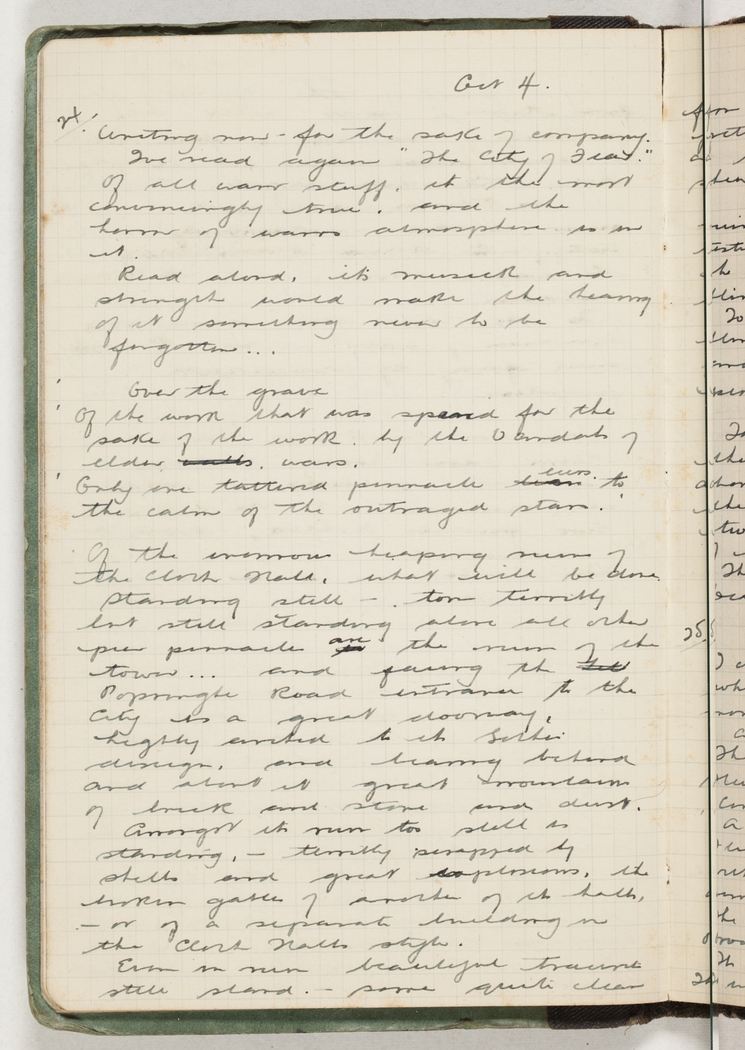 Oct 4.
24.
Writing now - for the sake of company.
Ive read again "The City of Fear."
Of all war stuff, it the most
convincingly true, and the
horror of wars atmosphere is in
it.
Read aloud, its musick and
strength would make the hearing
of it something never to be
forgotten...
Over the grave
' Of the work that was spared for the
sake of the work, by the Vandals of
elder walls. wars.
' Only one tattered pinnacle leers to
the calm of the outraged stars.'
Of the enormous heaping ruin of
the Cloth Hall, what will be done
standing still - torn terribly
but still standing above all other
poor pinnacle are the ruin of the
tower... and facing the
Poperinghe Road entrance to the
City is a great doorway,
highly arched to its Gothic
design, and bearing behind
and about it great mountain
of brick and stone and dust.
Amongst its ruin too still is
standing, - terribly scrapped by
shells and great explosions, the
broken gables of another of its halls,
- or of a separate building in
the Cloth Halls style.
Even in ruin beautiful traceries
still stand. - some quite clear
25.